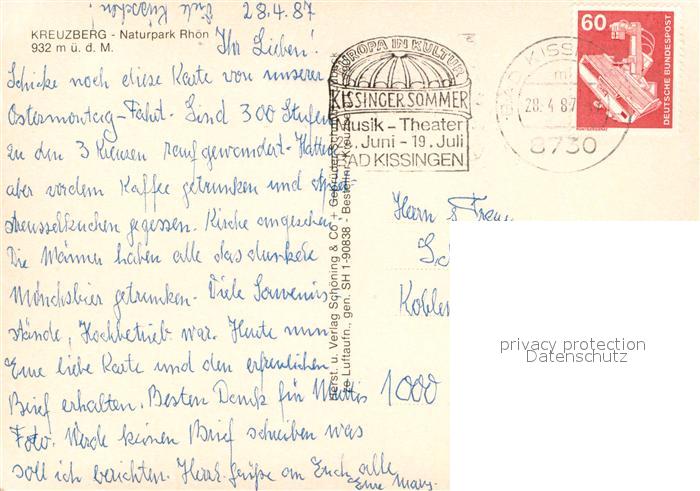 28.4.87
KREUZBERG - Naturpark Rhön
932 m ü. d. M.
Ihr Lieben!
Schicke noch diese Karte von unserer
Ostermontag-Fahrt. Sind 300 Stufen
zu den 3 Kreuzen raufgewandert. Hatten
aber vordem Kaffee getrunken und
streusselkuchen gegessen. Kirche angesehen.
Die Männer haben alle das dunkele
Mönchsbier getrunken. Viele Souvenir-
stände, Hochbetrieb war. Heute nun
Eine liebe Karte und den erfreulichen
Brief erhalten. Besten Dank für Muttis
Foto. Werde keinen Brief schreiben was
soll ich berichten. Herzl. Grüße an Euch alle
Eure
Herst. u. Verlag Schöning & Co + Gebrüder Schmidt
Luftaufn., gen. SH 1-90838 - Bestellnr.
EUROPA IN KULTUR
KISSINGER SOMMER
Musik - Theater
Juni - 19. Juli
BAD KISSINGEN
BAD KISSINGEN
28.4.87
8730
60
DEUTSCHE BUNDESPOST
Herrn & Frau
1000
privacy protection
Datenschutz